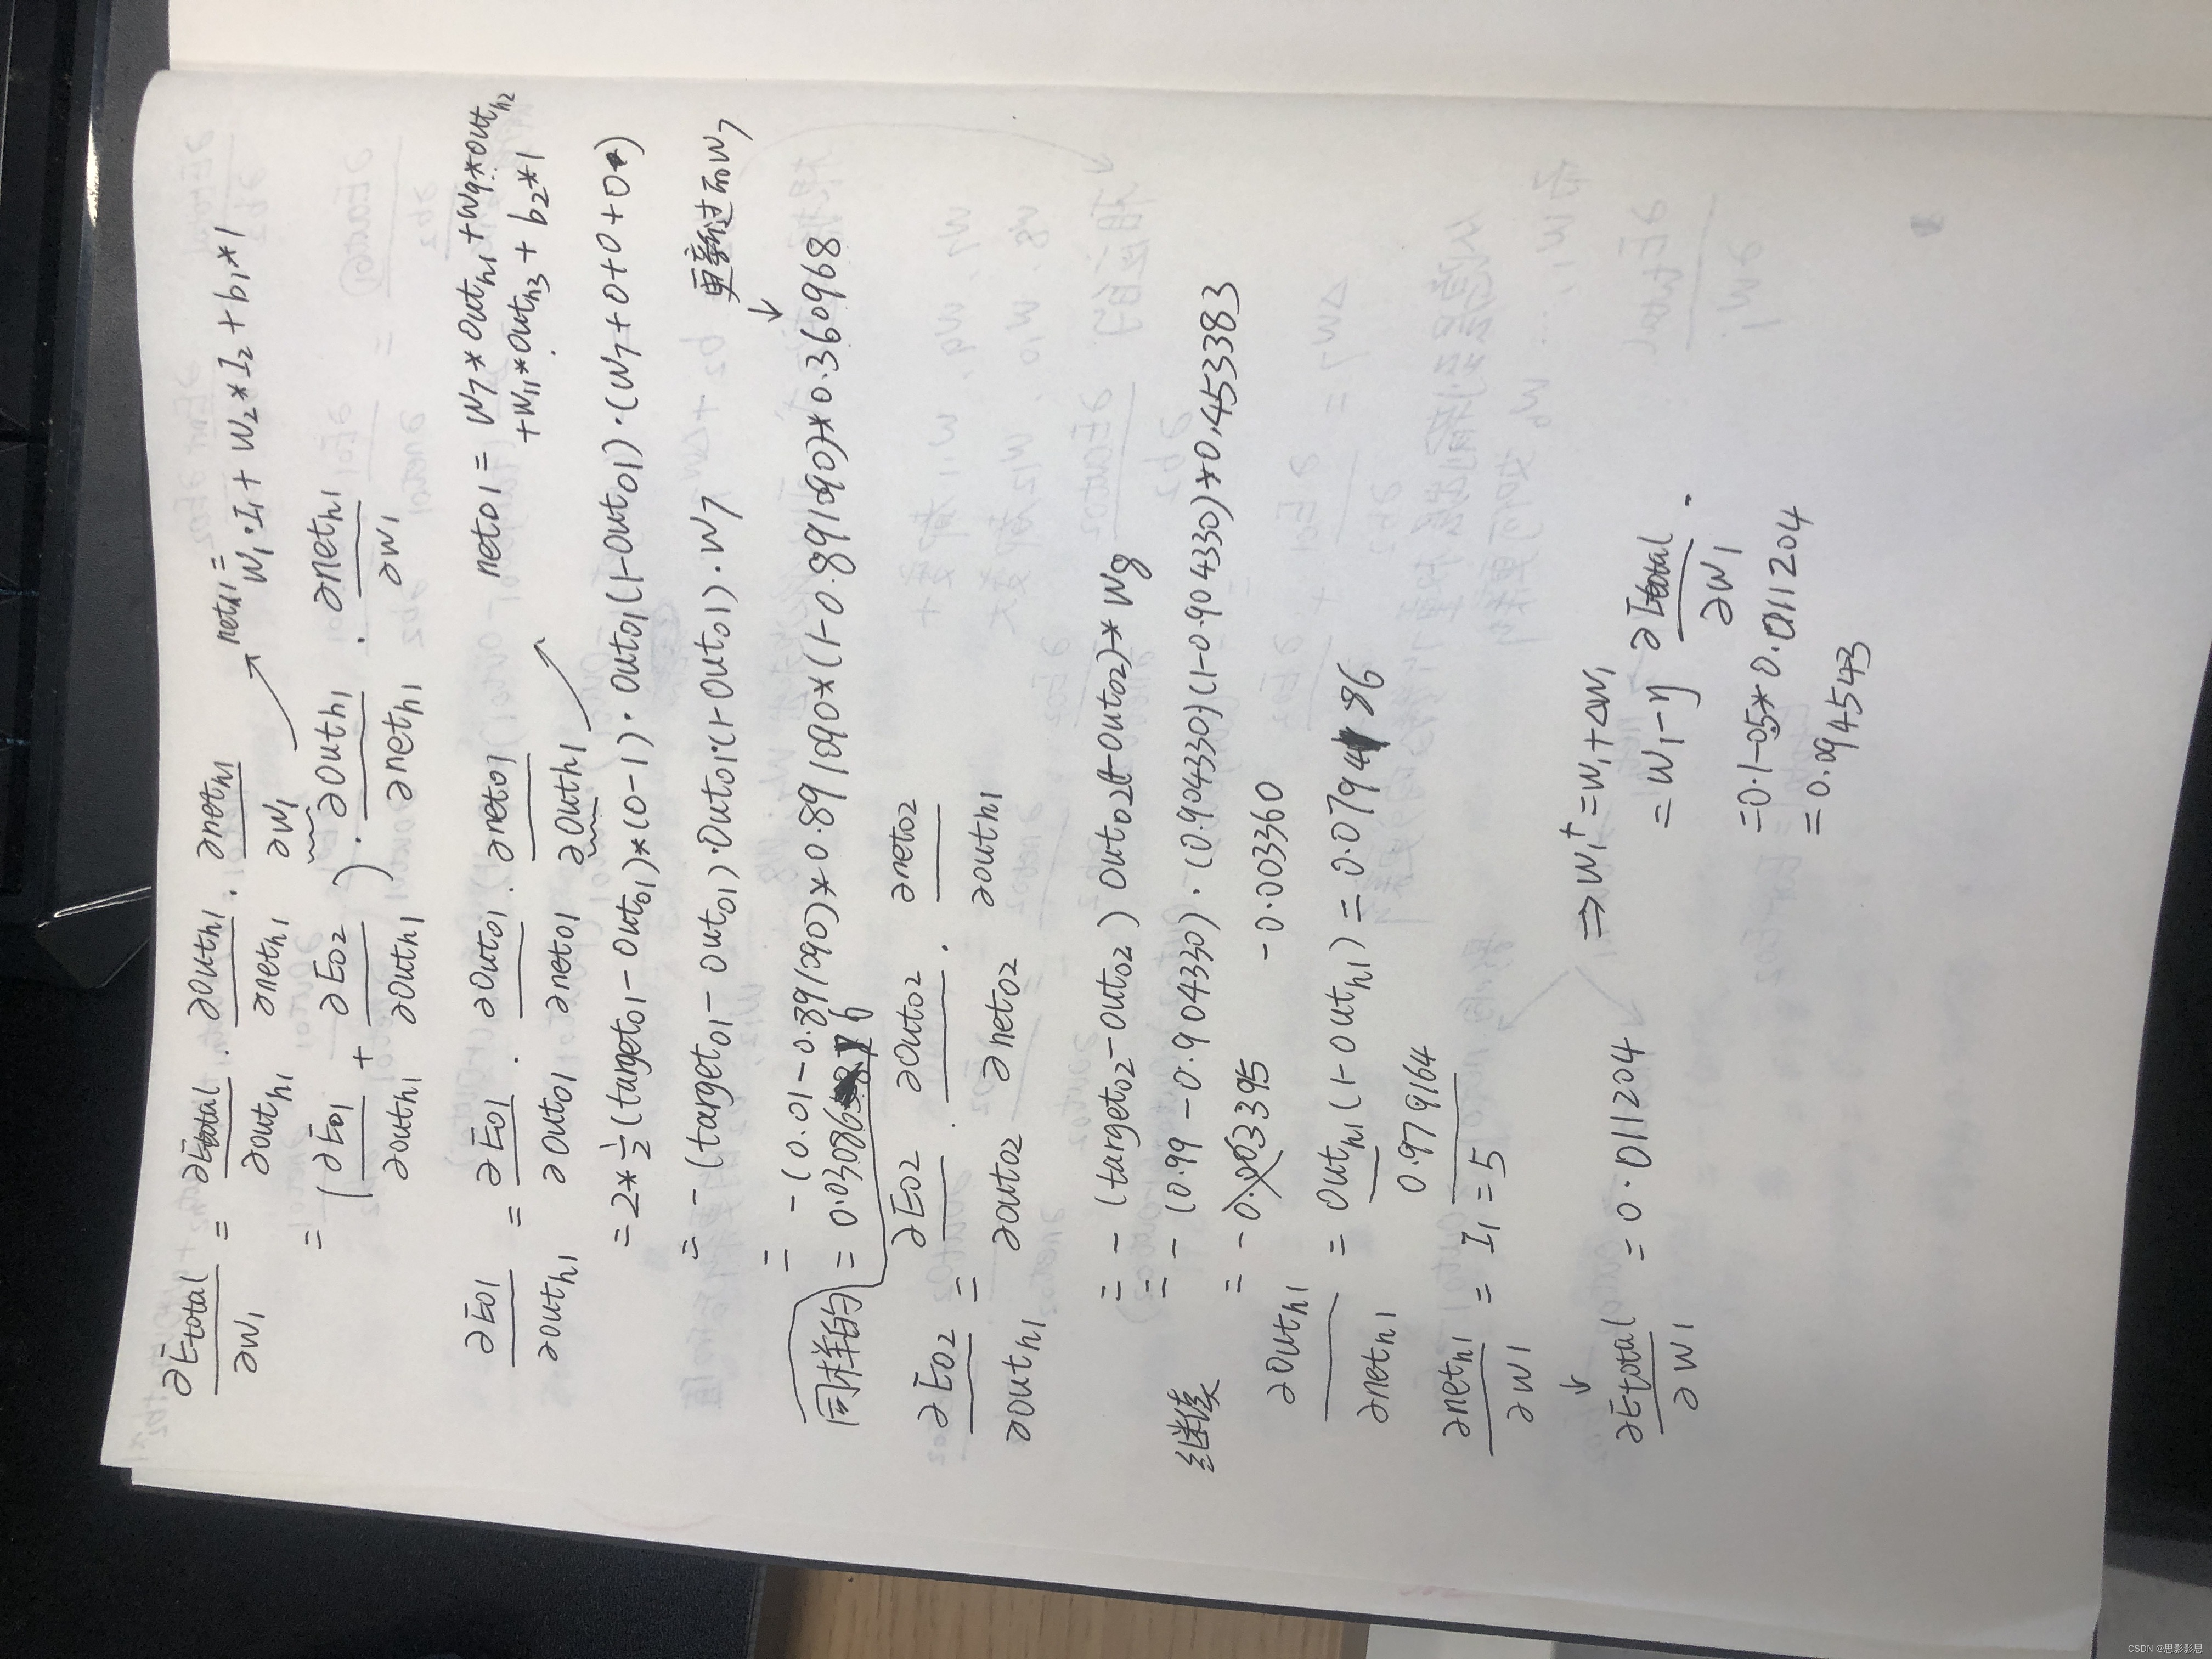 ∂Etotal/∂w1 = ∂Etotal/∂outh1 · ∂outh1/∂neth1 · ∂neth1/∂w1
neth1 = w1·I1 + w2*I2 + b1*1
= (∂Eo1/∂outh1 + ∂Eo2/∂outh1) · ∂outh1/∂neth1 · ∂neth1/∂w1
∂Eo1/∂outh1 = ∂Eo1/∂outo1 · ∂outo1/∂neto1 · ∂neto1/∂outh1
neto1 = w7*outh1 + w9*outh2
+w11*outh3 + b2*1
= 2*½(targeto1 - outo1)*(0-1) · outo1(1-outo1)·(w7+0+0+0)
= -(targeto1 - outo1)·outo1·(1-outo1)·w7
更新过的w7
= -(0.01-0.891090)*0.891090*(1-0.891090)*0.360968
= 0.03086
同样的
∂Eo2/∂outh1 = ∂Eo2/∂outo2 · ∂outo2/∂neto2 · ∂neto2/∂outh1
= -(targeto2-outo2)outo2(1-outo2)*w8
= -(0.99-0.904330)·(0.904330)(1-0.904330)*0.453383
= -0.003395 -0.003360
继续
∂outh1/∂neth1 = outh1(1-outh1) = 0.079486
0.979164
∂neth1/∂w1 = I1 = 5
∂Etotal/∂w1 = 0.011204
⇒ w1⁺ = w1+Δw1
= w1 - η ∂Etotal/∂w1 .
= 0.1-0.5*0.0111204
= 0.094543
CSDN @思影影思